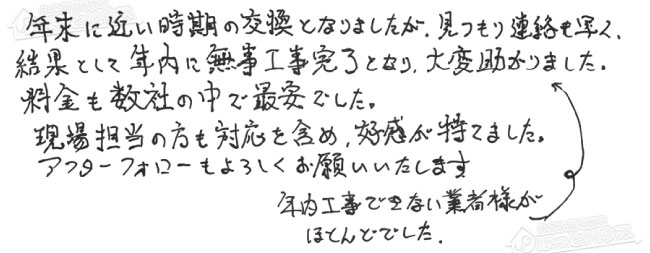 年末に近い時期の交換となりましたが、見つもり連絡も早く、
結果として年内に無事工事完了となり、大変助かりました。
料金も数社の中で最安でした。
現場担当の方も対応を含め、好感が持てました。
アフターフォローもよろしくお願いいたします
年内工事できない業者様が
ほとんどでした.